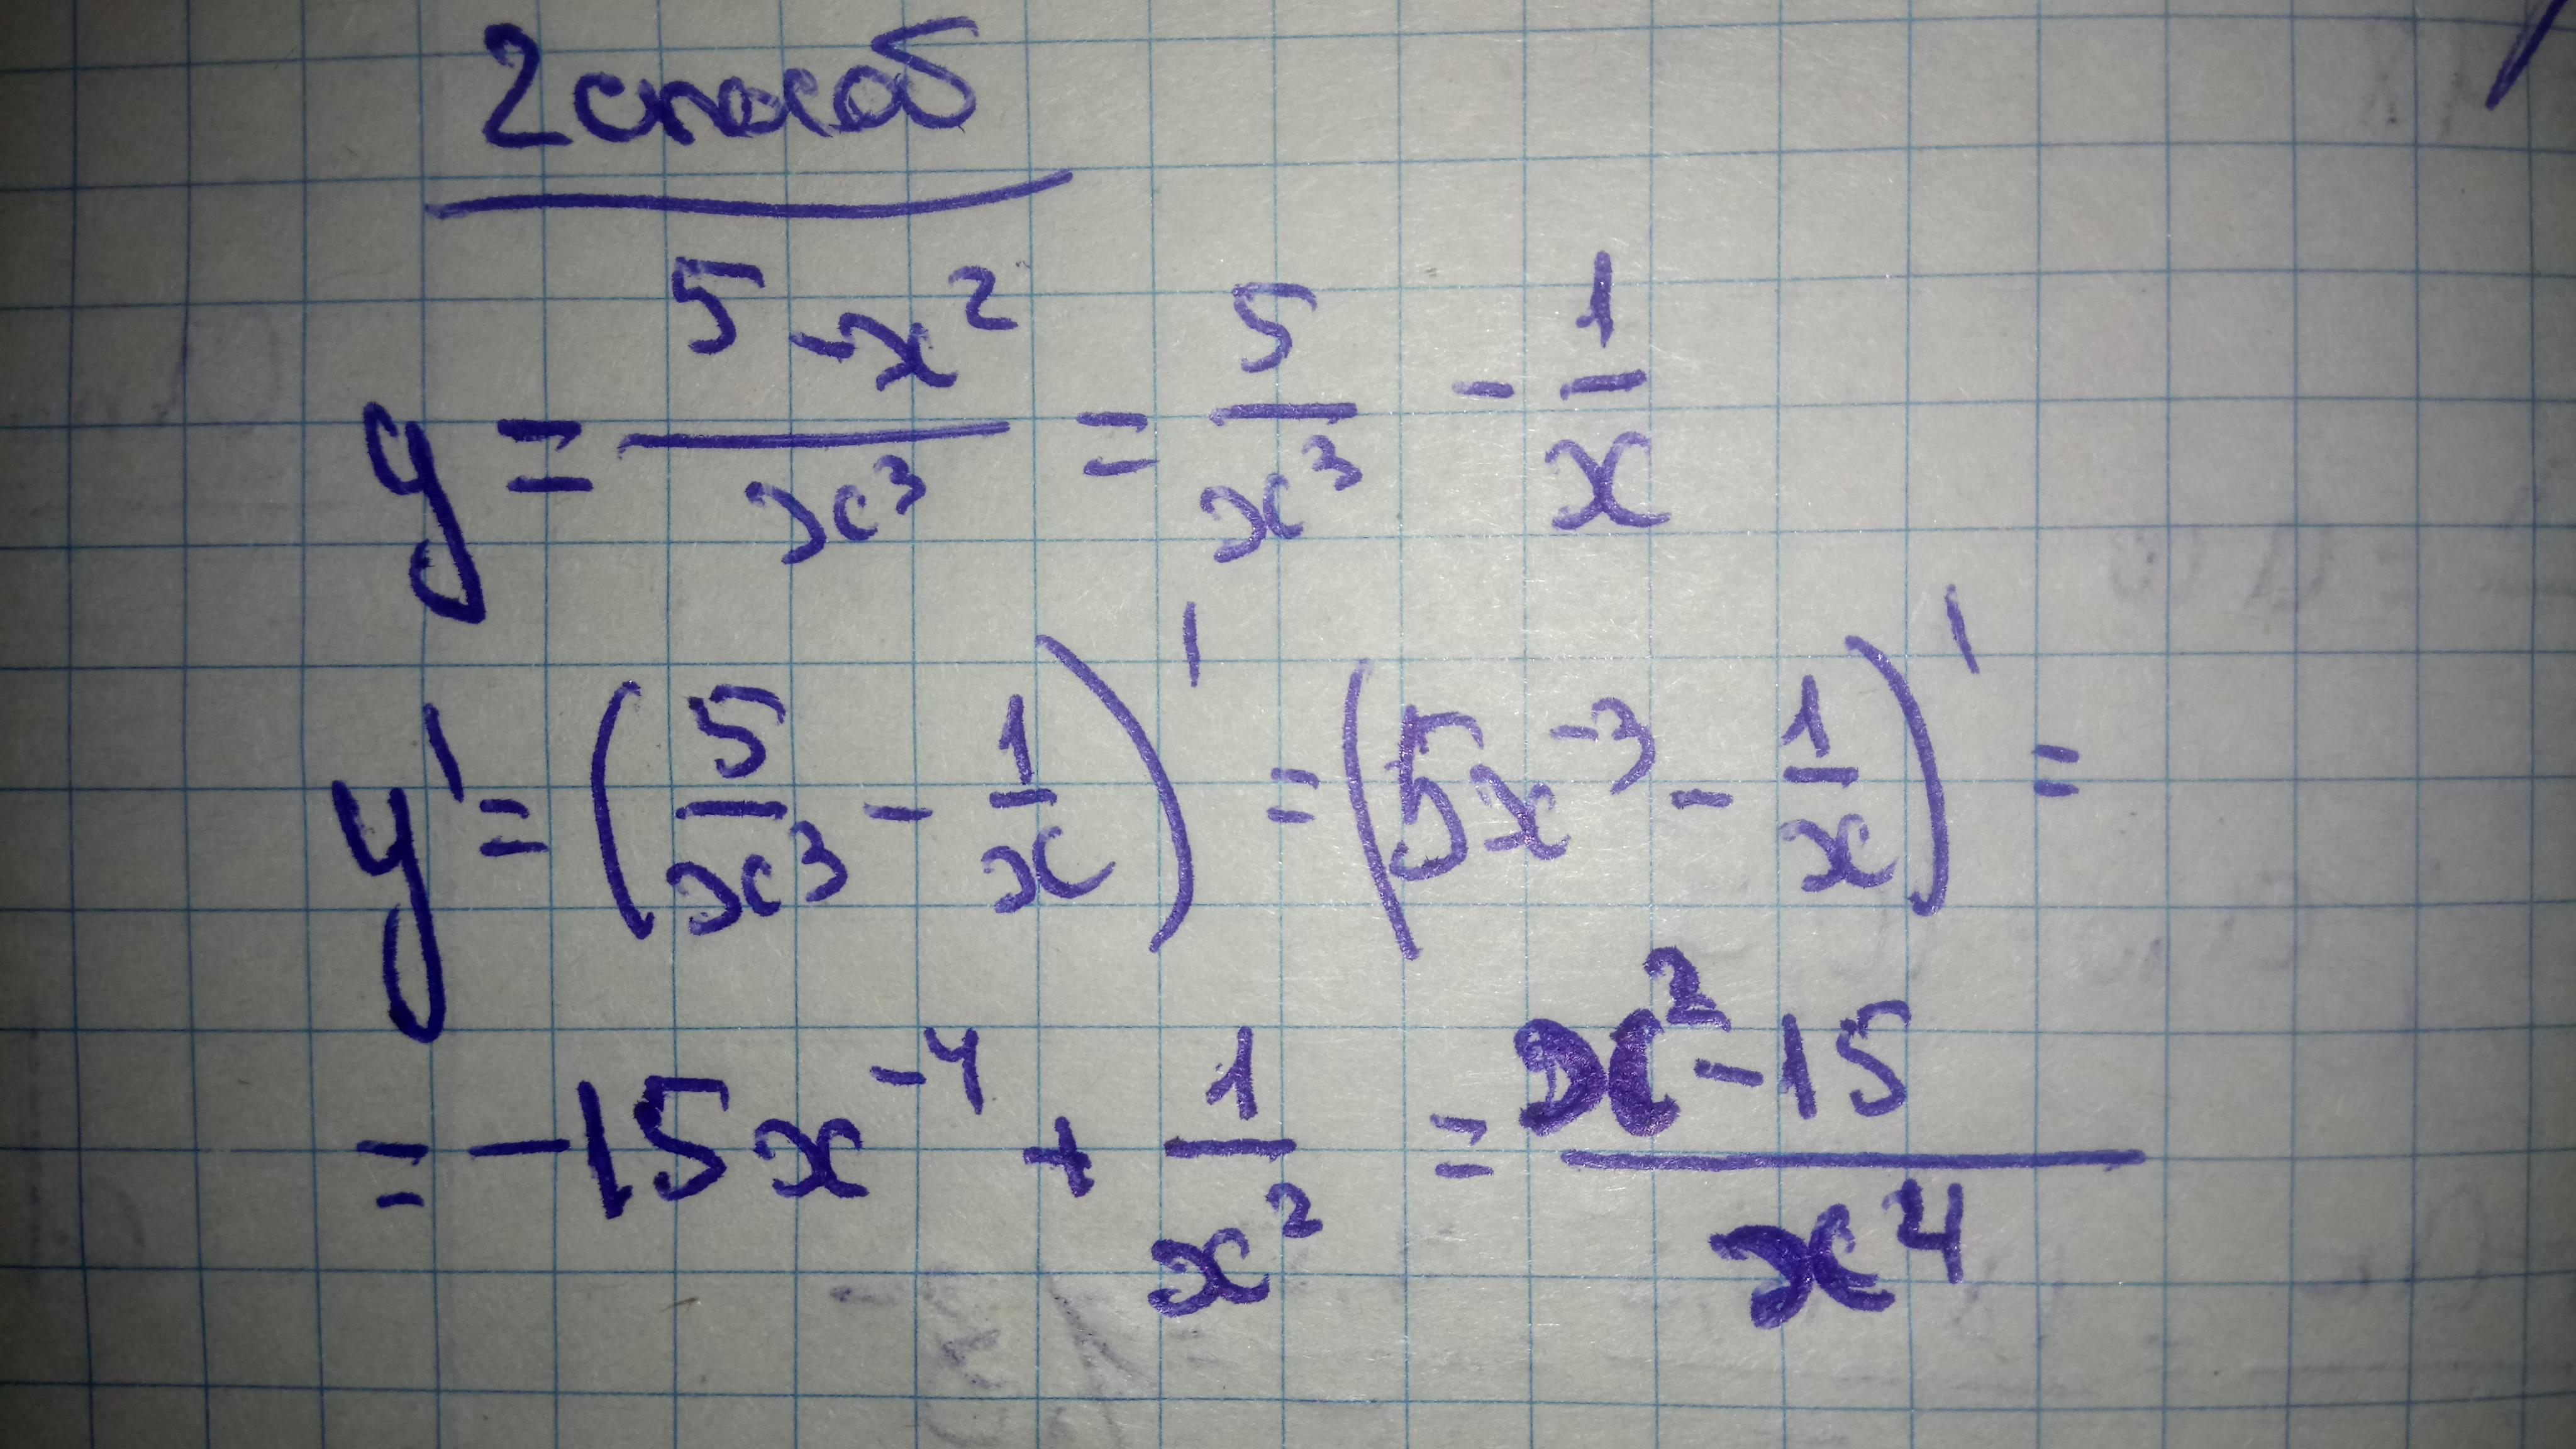 2 способ
y = (5 - x²)/x³ = 5/x³ - 1/x
y' = (5/x³ - 1/x)' = (5x⁻³ - 1/x)' =
= -15x⁻⁴ + 1/x² = (x² - 15)/x⁴